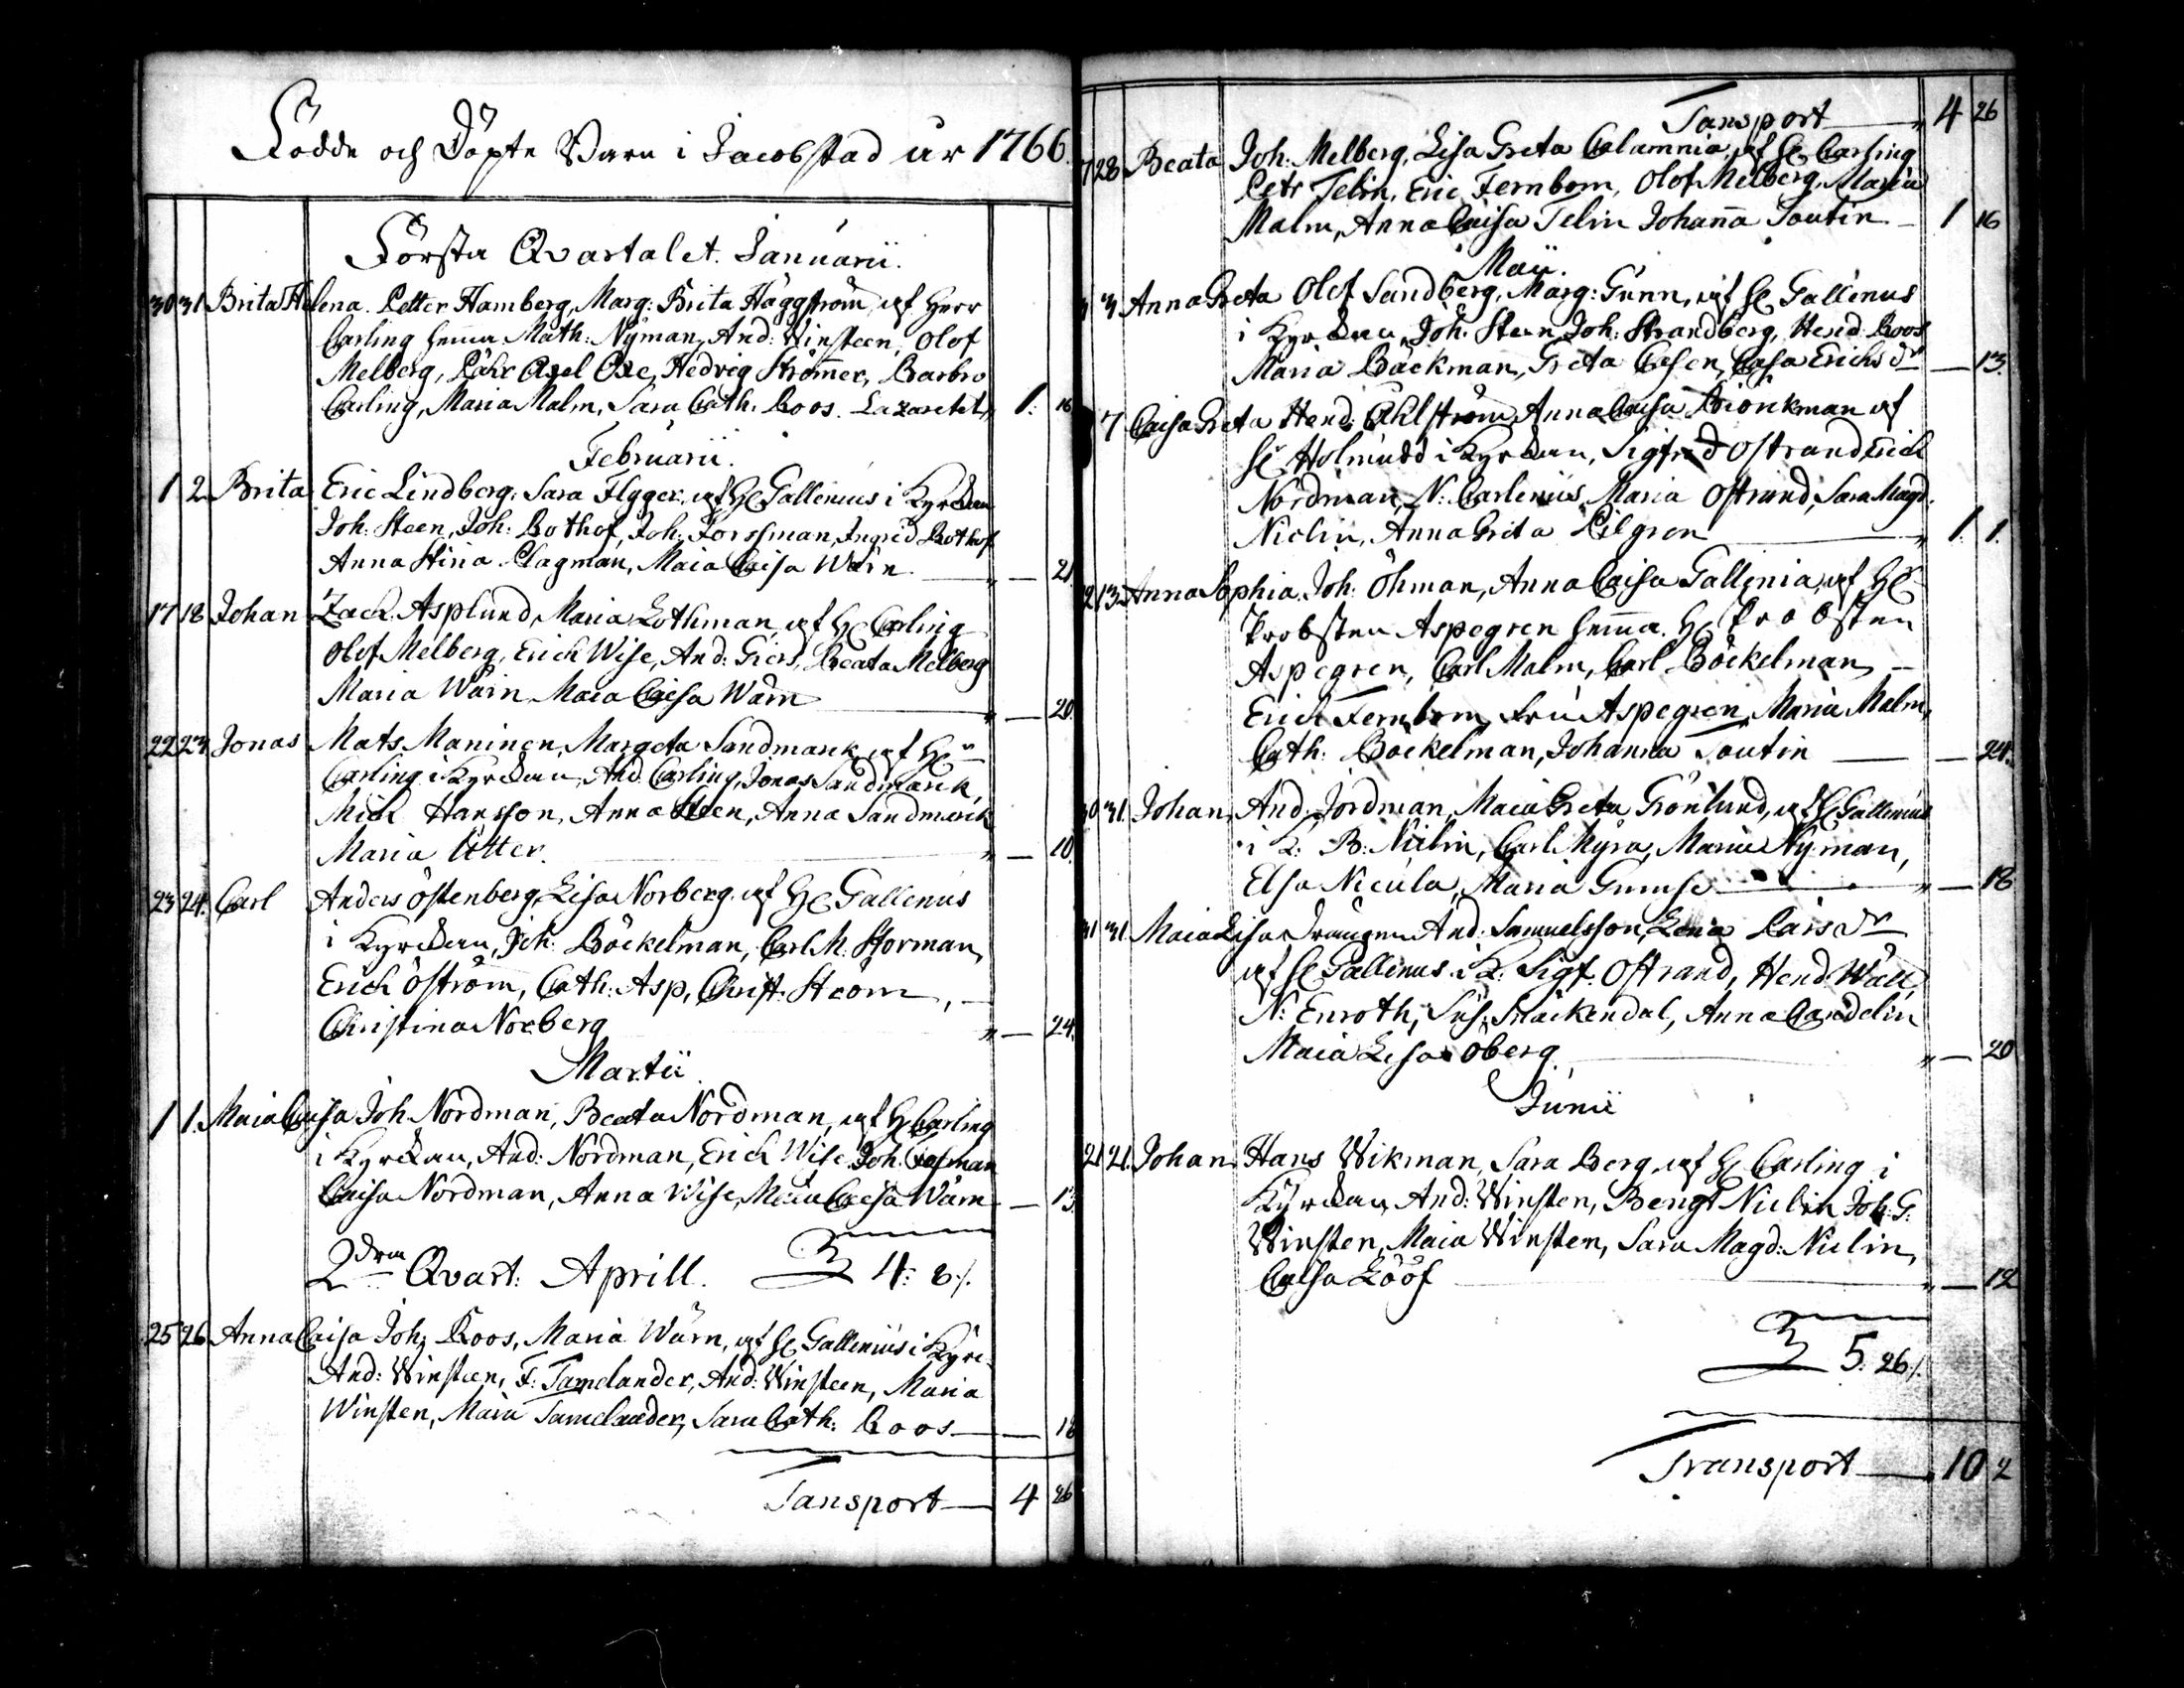 Födde och Döpte Barn i Jacobstad år 1766.
Första Qvartalet. Januarii.
30 31 Brita Helena. Petter Hamberg, Marg: Brita Häggström, af Herr
Carling hema Math: Nyman, And: Winsteen, Olof
Melberg, Pähr Axel Oxe, Hedvig Strömer, Barbro
Carling, Maria Malm, Sara Cath: Roos. Lazarettet, 1: 16
Februarii.
1 2 Brita Eric Lindberg, Sara Flygger, af HE Gallenius i Kyrckan
Joh: Steen, Joh: Bothof, Joh: Forssman, Ingrid Bothof
Anna Stina Clagman, Maia Caisa Wärn — 21
17 18 Johan Zach. Asplund, Maria Lothman, af HE Carling
Olof Melberg, Erich Wise, And: Giers, Beata Melberg
Maria Wärn, Maia Caisa Wärn — 20.
22 23 Jonas Mats Maninen, Margeta Sandmark, af HE
Carling i Kyrckan, And. Carling, Jonas Sandmarck,
Mich Hansson, Anna Steen, Anna Sandmarck
Maria Utter. — 10.
23 24. Carl Anders Östenberg, Lisa Norberg, af HE Gallenius
i Kyrckan, Joh: Böckelman, Carl M. Storman,
Erich Öström, Cath: Asp, Christ: Ström, —
Christina Norberg — 24.
Martii
1 1. Maia Caisa Joh. Nordman, Beata Nordman, af H Carling
i Kyrckan, And: Nordman, Erich Wise, Joh.
Caisa Nordman, Anna Wise, Maia Caisa Wärn — 13.
2dra Qvart: Aprill. 4: 8 ./.
25 26 Anna Caisa Joh: Roos, Maria Wärn, af HE Gallenius i Kyrc.
And: Winsteen, F: Tamelander, And: Winsteen, Maria
Winsten, Maria Tamelander, Sara Cath: Roos — 18
Tansport — 4 26
Tansport — 4 26
28 Beata Joh: Melberg, Lisa Greta Calamnia, af HE Carling
Petr Telin, Eric Fernbom, Olof Melberg, Maria
Malm, Anna Caisa Telin Johana Toutin — 1 16
Maii.
3 Anna Greta Olof Sandberg, Marg: Gunn, af HE Gallenus
i Kyrckan, Joh: Steen, Joh: Strandberg, Hend: Roos
Maria Bäckman, Greta Casen, Casa Erichs dr — 13.
7 Caisa Greta Hend: Ahlström, Anna Caisa Biörckman af
HE Holmudd i Kyrckan, Sigfred Ostrand, Erich
Nordman, N: Carlenius, Maria Ostrand, Sara Magd.
Niclin, Anna Greta Pilgren — 1. 1.
12 13. Anna Sophia. Joh: Öhman, Anna Caisa Gallenia, af HE
Probsten Aspegren hema. HE Probsten
Aspegren, Carl Malm, Carl Böckelman, —
Erich Fernbom, Fru Aspegren, Maria Malm,
Cath: Böckelman, Johanna Toutin — 24.
30 31. Johan And. Jordman, Maia Greta Grönlund, af HE Gallenius
i K: B: Niclin, Carl Myra, Maria Nyman,
Elsa Nicula, Maria — 18
31 31 Maia Lisa And: Samuelsson, Lena Larsdr
af HE Gallenus i K: Sigf. Ostrand, Hend: Wäll
N: Enroth, Sus: Släckendal, Anna Candelin
Maia Lisa Oberg — 20
Junii
21 21. Johan Hans Wikman, Sara Berg, af HE Carling i
Kyrckan, And: Winsten, Bengt Niclin Joh: G:
Winsten, Maia Winsten, Sara Magd: Niclin,
Caisa Lööf — 12
5: 26 ./.
Transport — 10 2